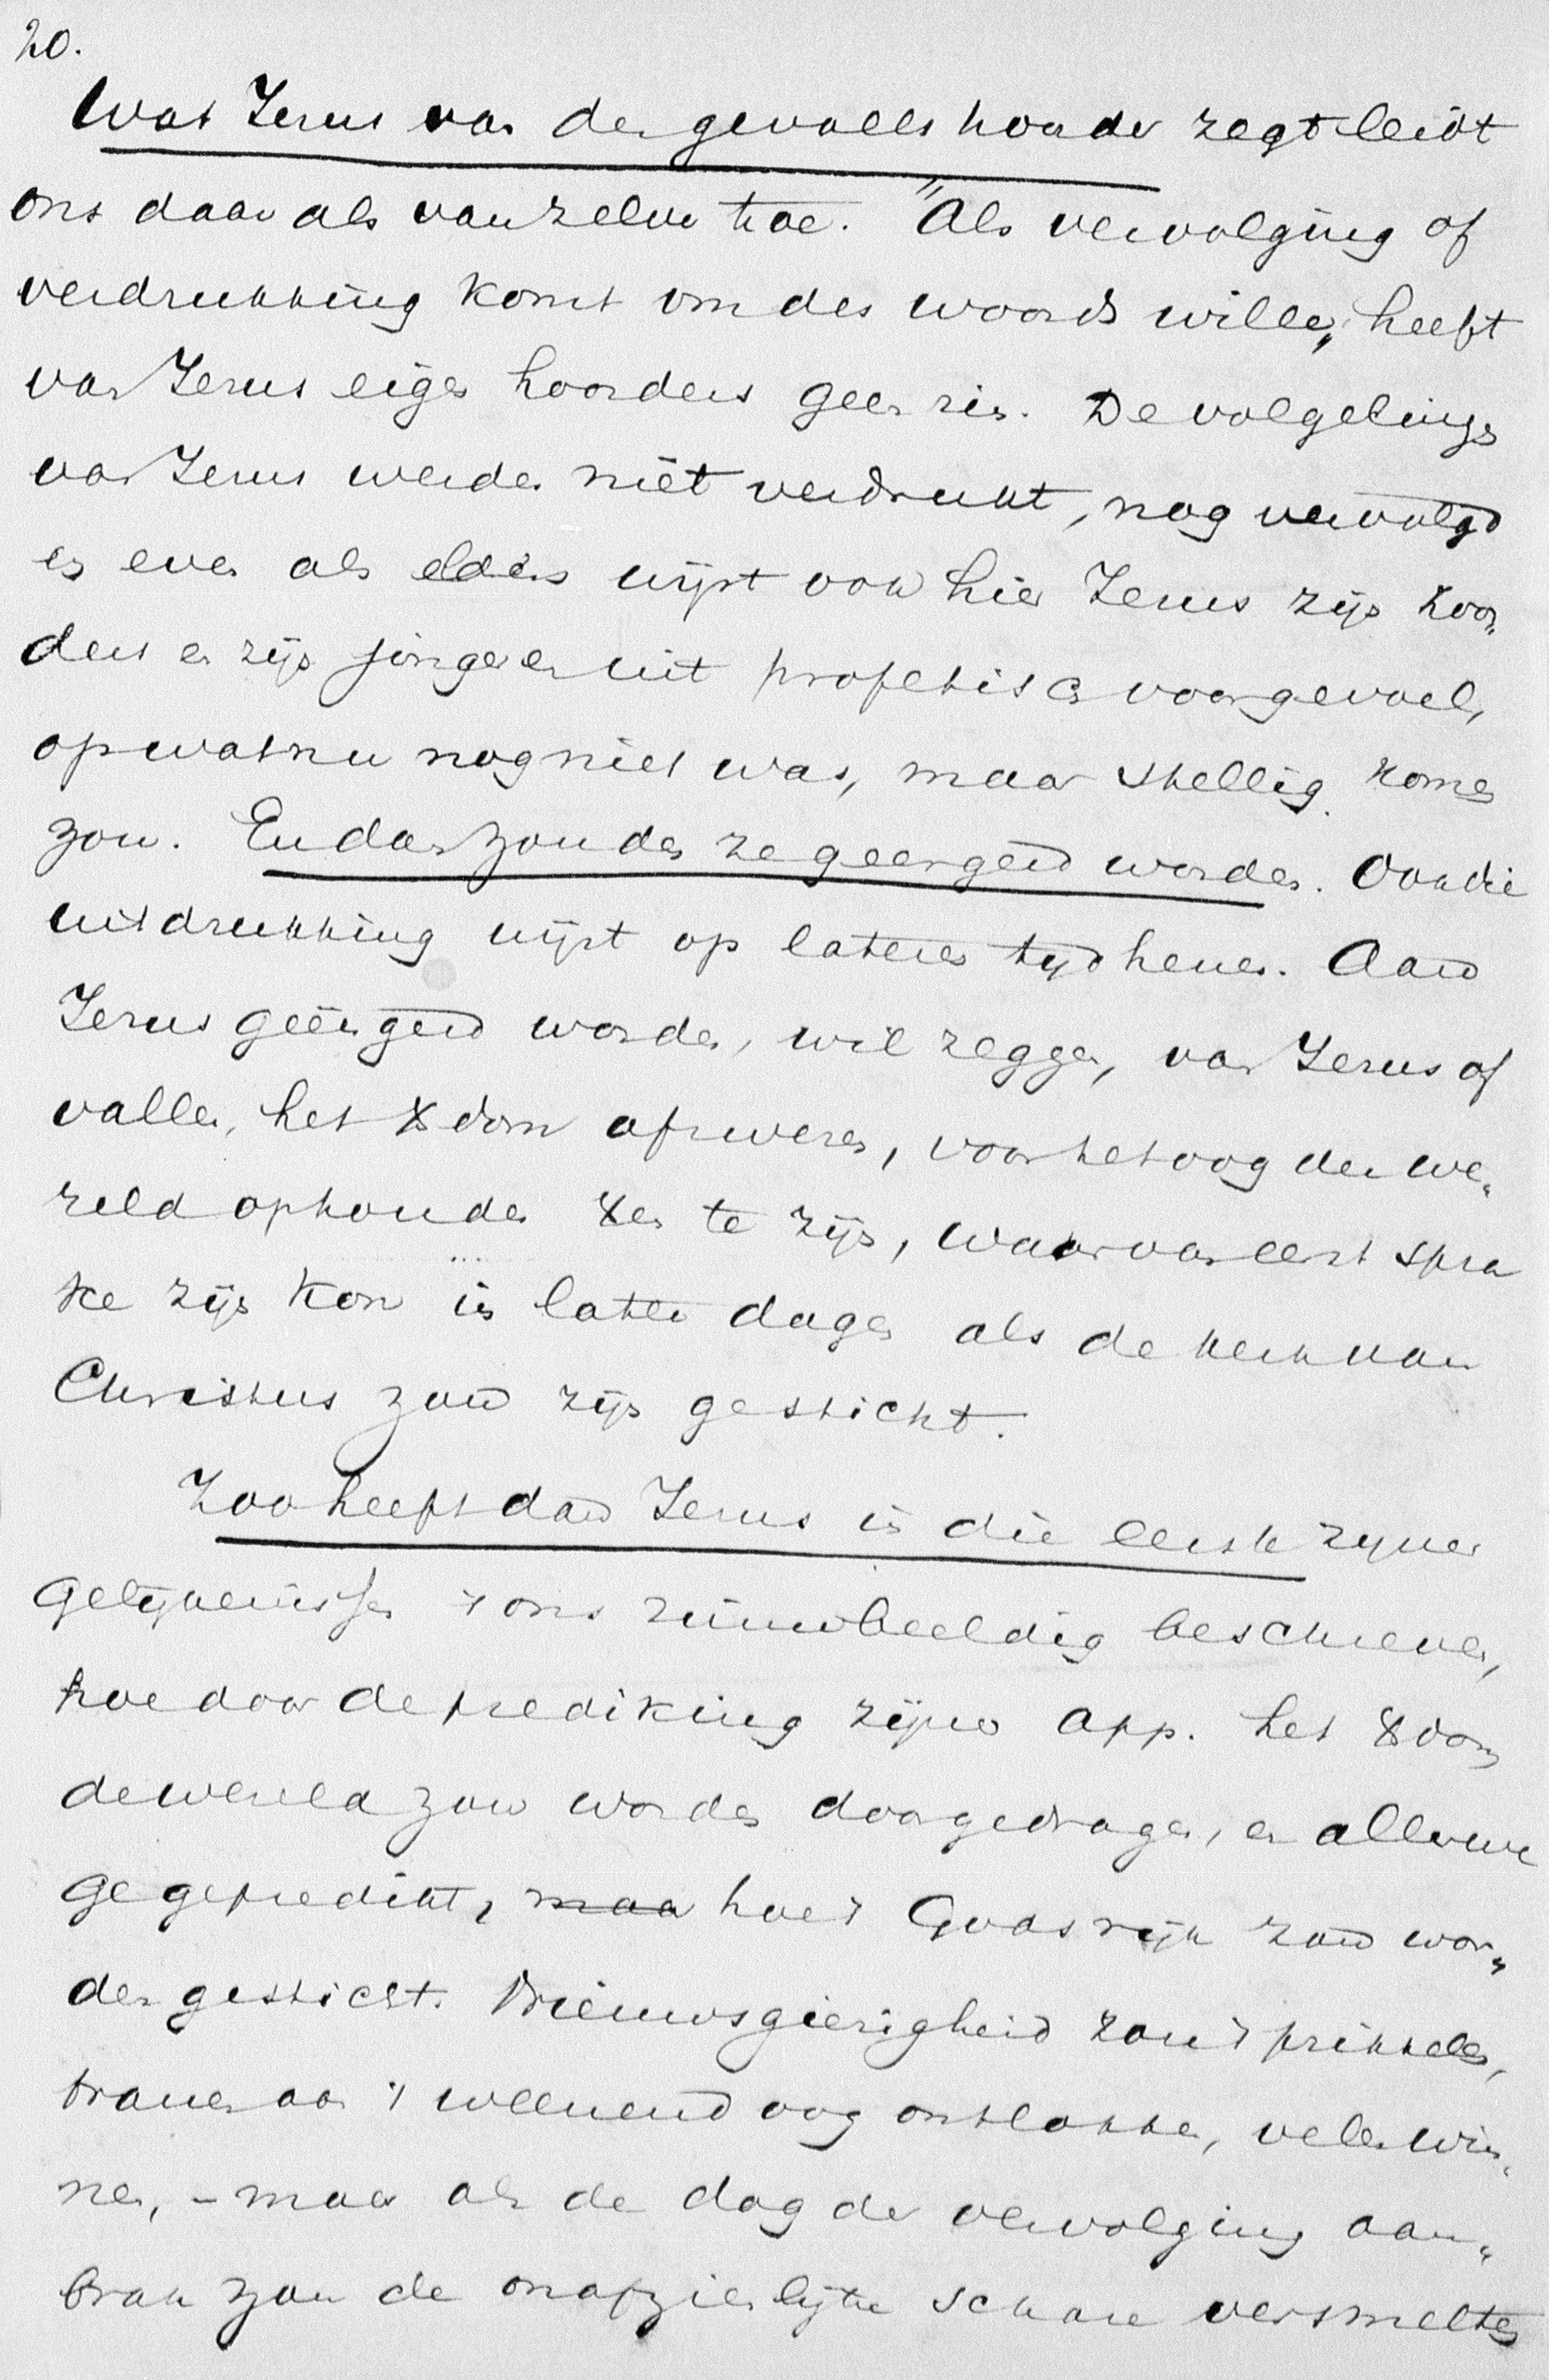 20.
Wat Jezus van den gevoelshoorder zegt leidt
ons daar als van zelve toe. "Als vervolging of
verdrukking komt om des woords wille," heeft
voor Jezus eigen hoorders geen zin. De volgelingen
van Jezus werden niet verdrukt, nog vervolgd
en even als elders wijst ook hier Jezus zijn hoor„
ders en zijn jongeren uit profetisch voorgevoel,
op wat nu nog niet was, maar stellig komen
zou. En dan zouden ze geergerd worden. Ook die
uitdrukking wijst op lateren tijd henen. Aan
Jezus geërgerd worden, wil zeggen, van Jezus af
vallen, het Xdom afzweren, voor het oog der we„
reld ophouden Xen te zijn, waarvan eerst spra
ke zijn kon in later dagen als de kerk van
Christus zou zijn gesticht.
Zoo heeft dan Jezus in die eerste zijner
Gelijkenissen 't ons zinnebeeldig beschreven,
hoe door de prediking zijner App. het Xdom
de wereld zou worden doorgedragen, en allerwe
ge gepredikt, maa hoe 't Godsrijk zou wor„
den gesticht. Nieuwsgierigheid zou 't prikkelen,
tranen aan 't weenend oog ontlokken, velen win„
nen, – maar als de dag der vervolging aan„
brak zou de onafzienlijke schare versmelten